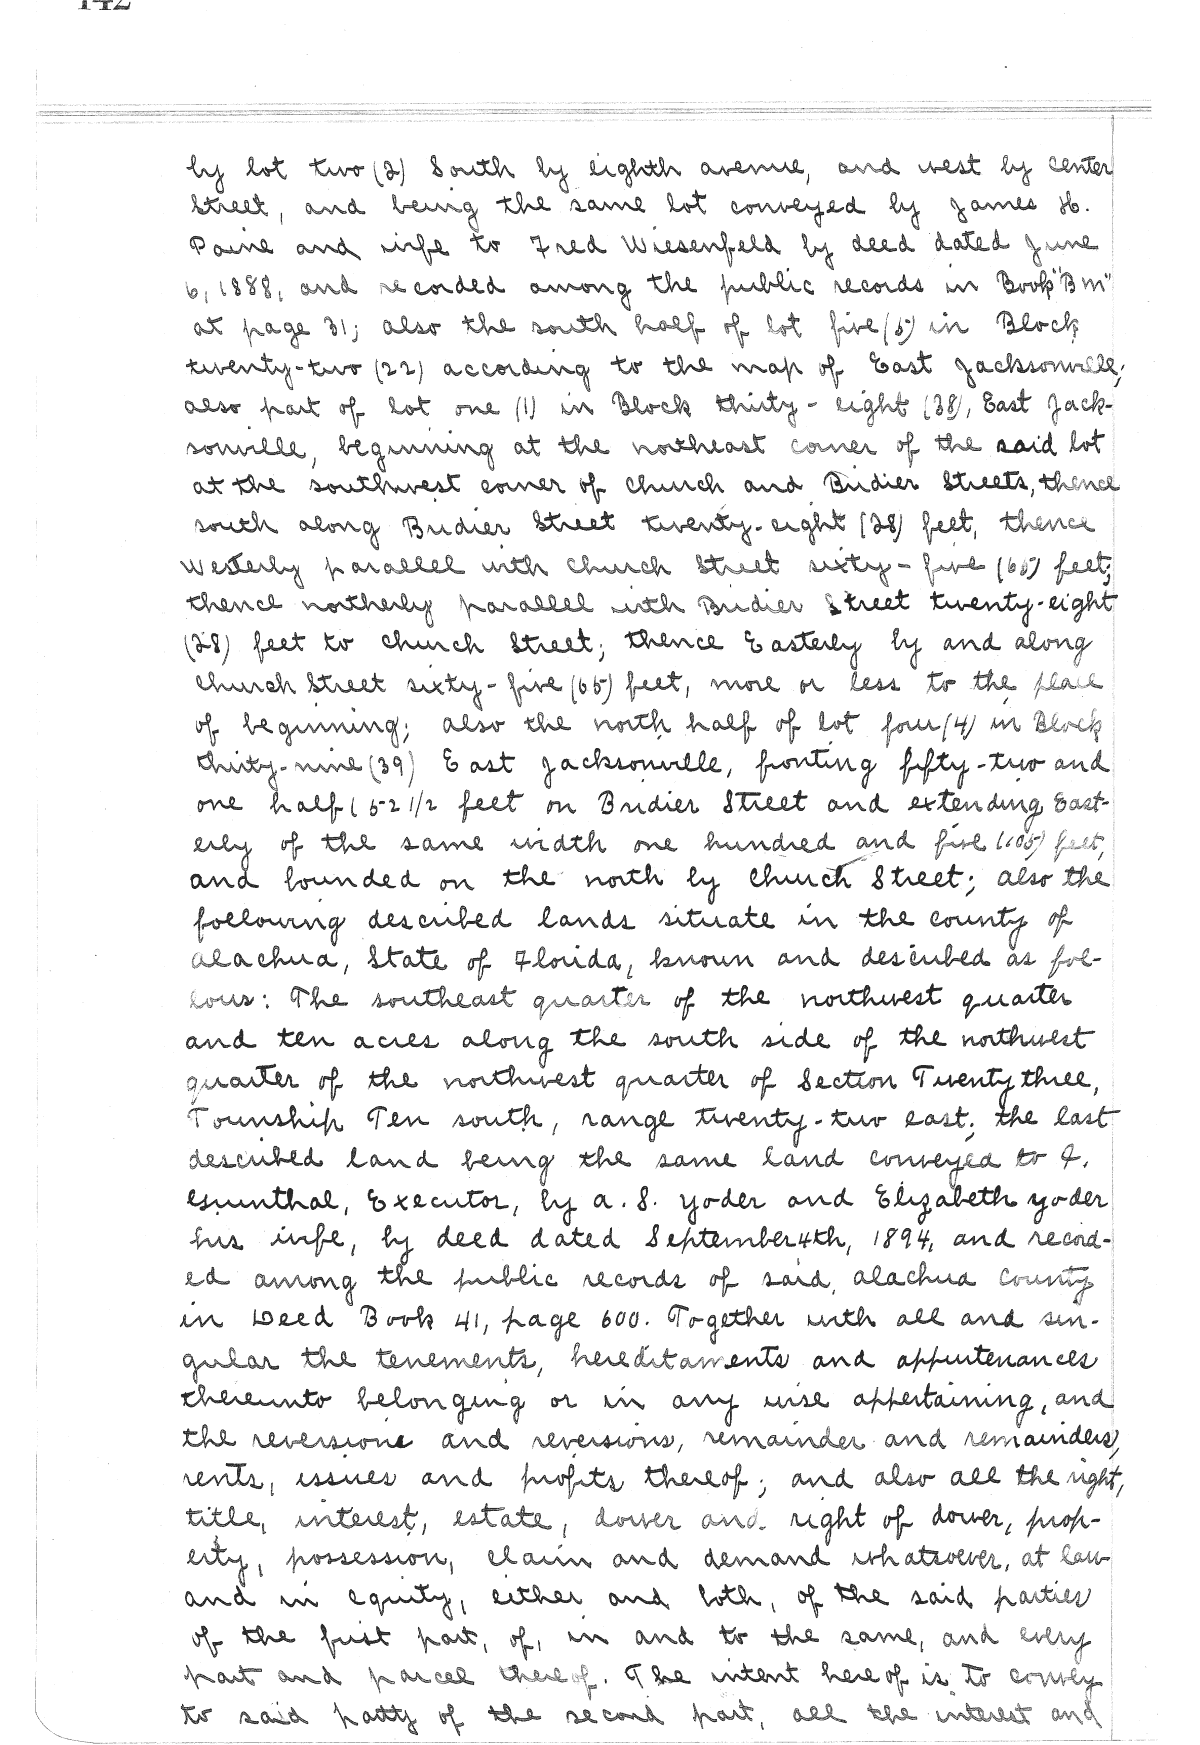 142
by lot two (2) South by eighth avenue, and west by center
Street, and being the same lot conveyed by James H.
Paine and wife to Fred Wiesenfeld by deed dated June
6, 1888, and recorded among the public records in Book "Bm"
at page 31; also the south half of lot five (5) in Block
twenty-two (22) according to the map of East Jacksonville;
also part of lot one (1) in Block thirty-eight (38), East Jack-
sonville, beginning at the northeast corner of the said lot
at the southwest corner of Church and Bridier Streets, thence
south along Bridier Street twenty-eight (28) feet, thence
Westerly parallel with Church Street sixty-five (65) feet;
thence northerly parallel with Bridier Street twenty-eight
(28) feet to Church Street; thence Easterly by and along
Church Street sixty-five (65) feet, more or less to the place
of beginning; also the north half of lot four (4) in Block
thirty-nine (39) East Jacksonville, fronting fifty-two and
one half (52 1/2 feet on Bridier Street and extending East-
erly of the same width one hundred and five (105) feet,
and bounded on the north by Church Street; also the
following described lands situate in the county of
Alachua, State of Florida, known and described as fol-
lows: The southeast quarter of the northwest quarter
and ten acres along the south side of the northwest
quarter of the northwest quarter of Section Twenty three,
Township Ten south, range twenty-two east; the last
described land being the same land conveyed to J.
Executor, by A. S. Yoder and Elizabeth Yoder
his wife, by deed dated September 4th, 1894, and record-
ed among the public records of said, Alachua County
in Deed Book 41, page 600. Together with all and sin-
gular the tenements, hereditaments and appurtenances
thereunto belonging or in any wise appertaining, and
the reversione and reversions, remainder and remainders,
rents, issues and profits thereof; and also all the right,
title, interest, estate, dower and right of dower, prop-
erty, possession, claim and demand whatsoever, at law
and in equity, either and both, of the said parties
of the first part, of, in and to the same, and every
part and parcel thereof. The intent hereof is to convey
to said patty of the second part, all the interest and